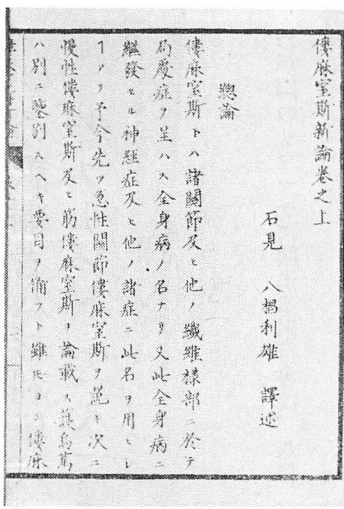 僂麻窒斯新論卷之上
石見 八杉利雄 譯述
總論
僂麻窒斯トハ諸關節及ヒ他ノ纖維樣部ニ於テ
局處症ヲ呈ハス全身病ノ名ナリ又此全身病ニ
繼發セル神經症及ヒ他ノ諸症ニ此名ヲ用ヒシ
ヿアリ予今先ツ急性關節僂麻窒斯ヲ説キ次ニ
慢性僂麻窒斯及ヒ筋僂麻窒斯ヲ論載ス
ハ別ニ スヘキ要旨ヲ備フト雖 僂麻